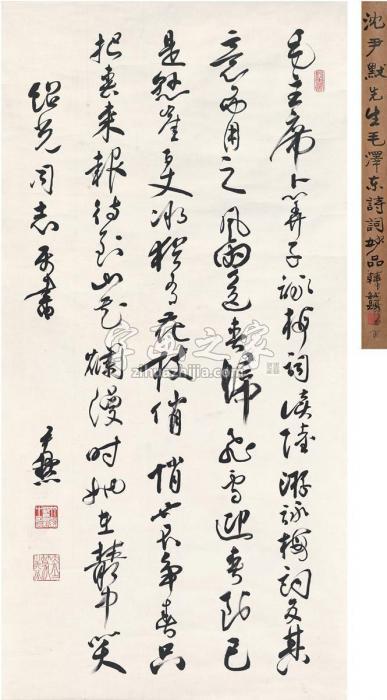 毛主席卜算子詠梅詞讀陸游詠梅詞反其
意而用之 風雨送春歸 飛雪迎春到已
是懸崖百丈冰猶有花枝俏 俏也不爭春只
把春來報待到山花爛漫時她在叢中笑
同志 書
尹默
沈尹默先生毛澤東詩詞妙品 韓
字画之家
zihuazhijia.com